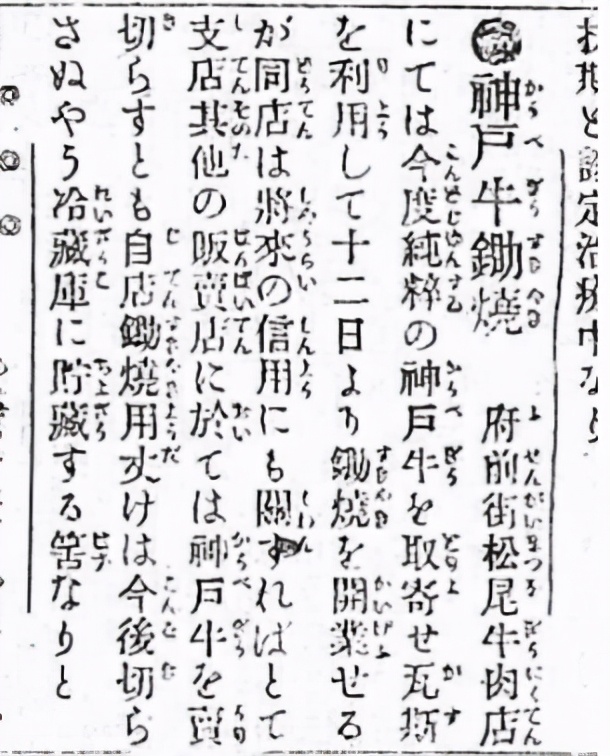 神戸牛鋤燒 府前街松尾牛肉店
にては今度純粹の神戸牛を取寄せ瓦斯
を利用して十二日より鋤燒を開業せる
が同店は將來の信用にも關すればとて
支店其他の販賣店に於ては神戸牛を賣
切らすとも自店鋤燒用丈けは今後切ら
さぬやう冷藏庫に貯藏する筈なりと